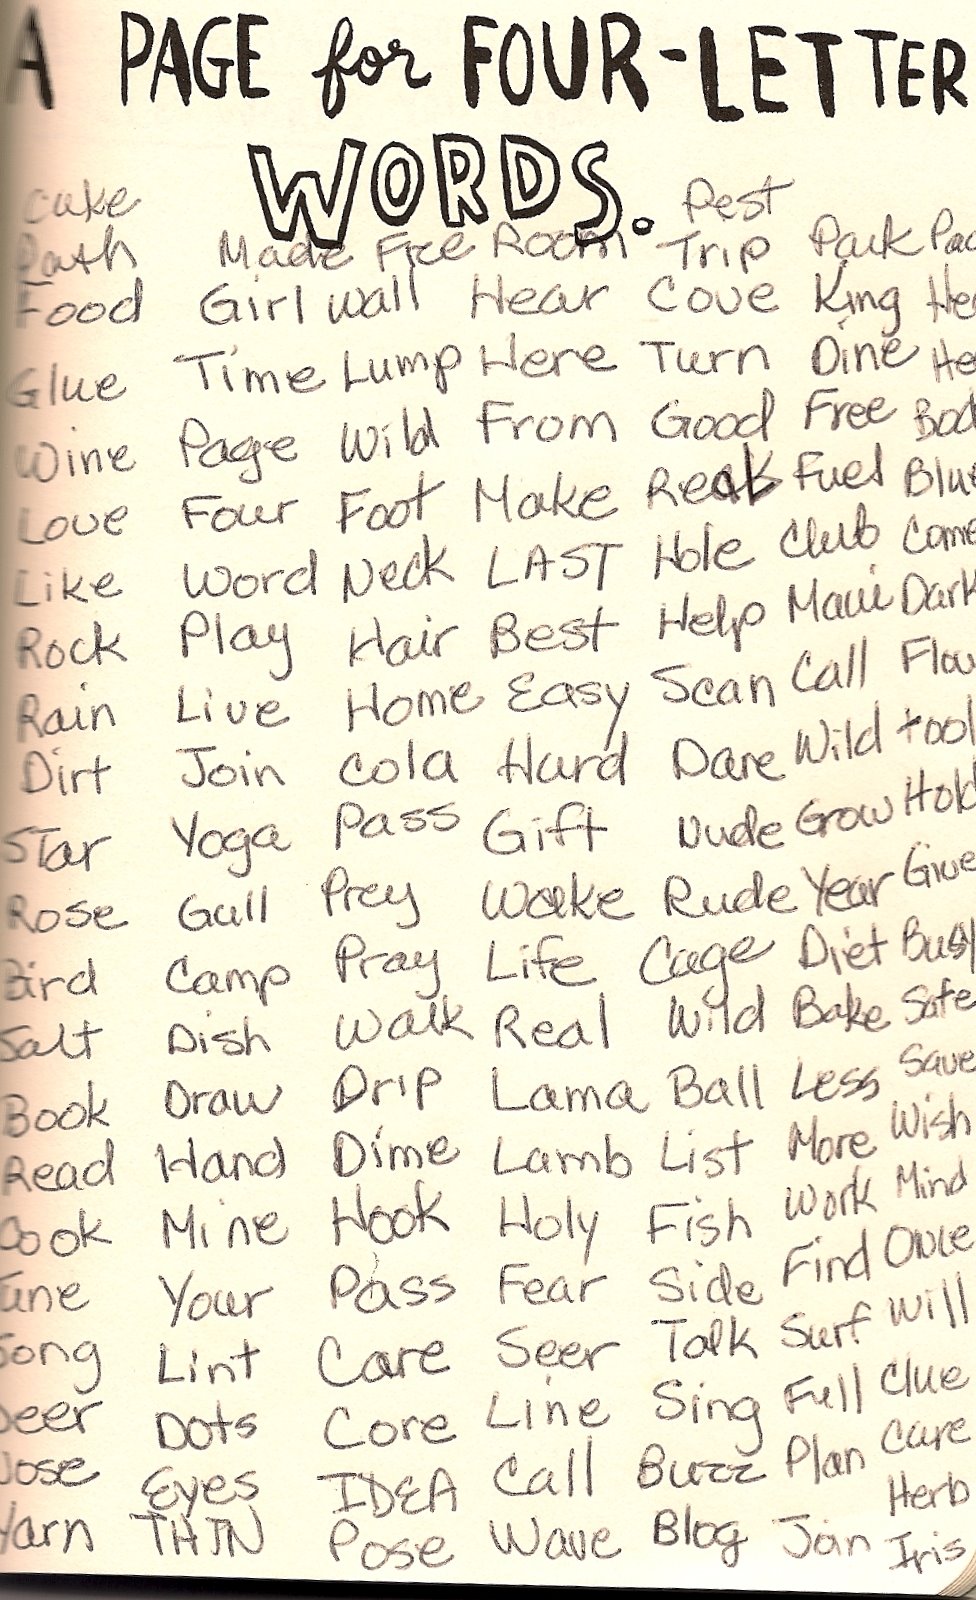 A PAGE for FOUR-LETTER
WORDS.
Cake Pest
Path Made Free Room Trip Park Pac
Food Girl Wall Hear Cove King He
Glue Time Lump Here Turn Dine He
Wine Page Wild From Good Free Bod
Love Four Foot Make Real Fuel Blue
Like Word Neck LAST Hole Club Come
Rock Play Hair Best Help Maui Dark
Rain Live Home Easy Scan Call Flou
Dirt Join cola Hard Dare Wild tool
Star Yoga Pass Gift Nude Grow Hold
Rose Gall Prey Wake Rude Year Give
Bird Camp Pray Life Cage Diet Busy
Salt Dish Walk Real Wild Bake Safe
Book Draw Drip Lama Ball Less Save
Read Hand Dime Lamb List More Wish
Cook Mine Hook Holy Fish Work Mind
Tune Your Pass Fear Side Find Once
Song Lint Care Seer Talk Surf Will
Deer Dots Core Line Sing Full Clue
Nose Eyes IDEA Call Buzz Plan Cure
Herb
Yarn THIN Pose Wave Blog Join Iris